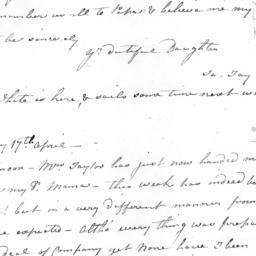 remember us all to Papa & believe me my
be sincerely
Yr. dutiful Daughter
Sa. Jay
White is here, & sails some time next w
y 17th April—
noon— Mrs. Taylor has just now handed m
my Dr. Mama— this week has indeed be
! but in a very different manner from
expected— Altho' every thing was prepa
deal of Company yet None have I been